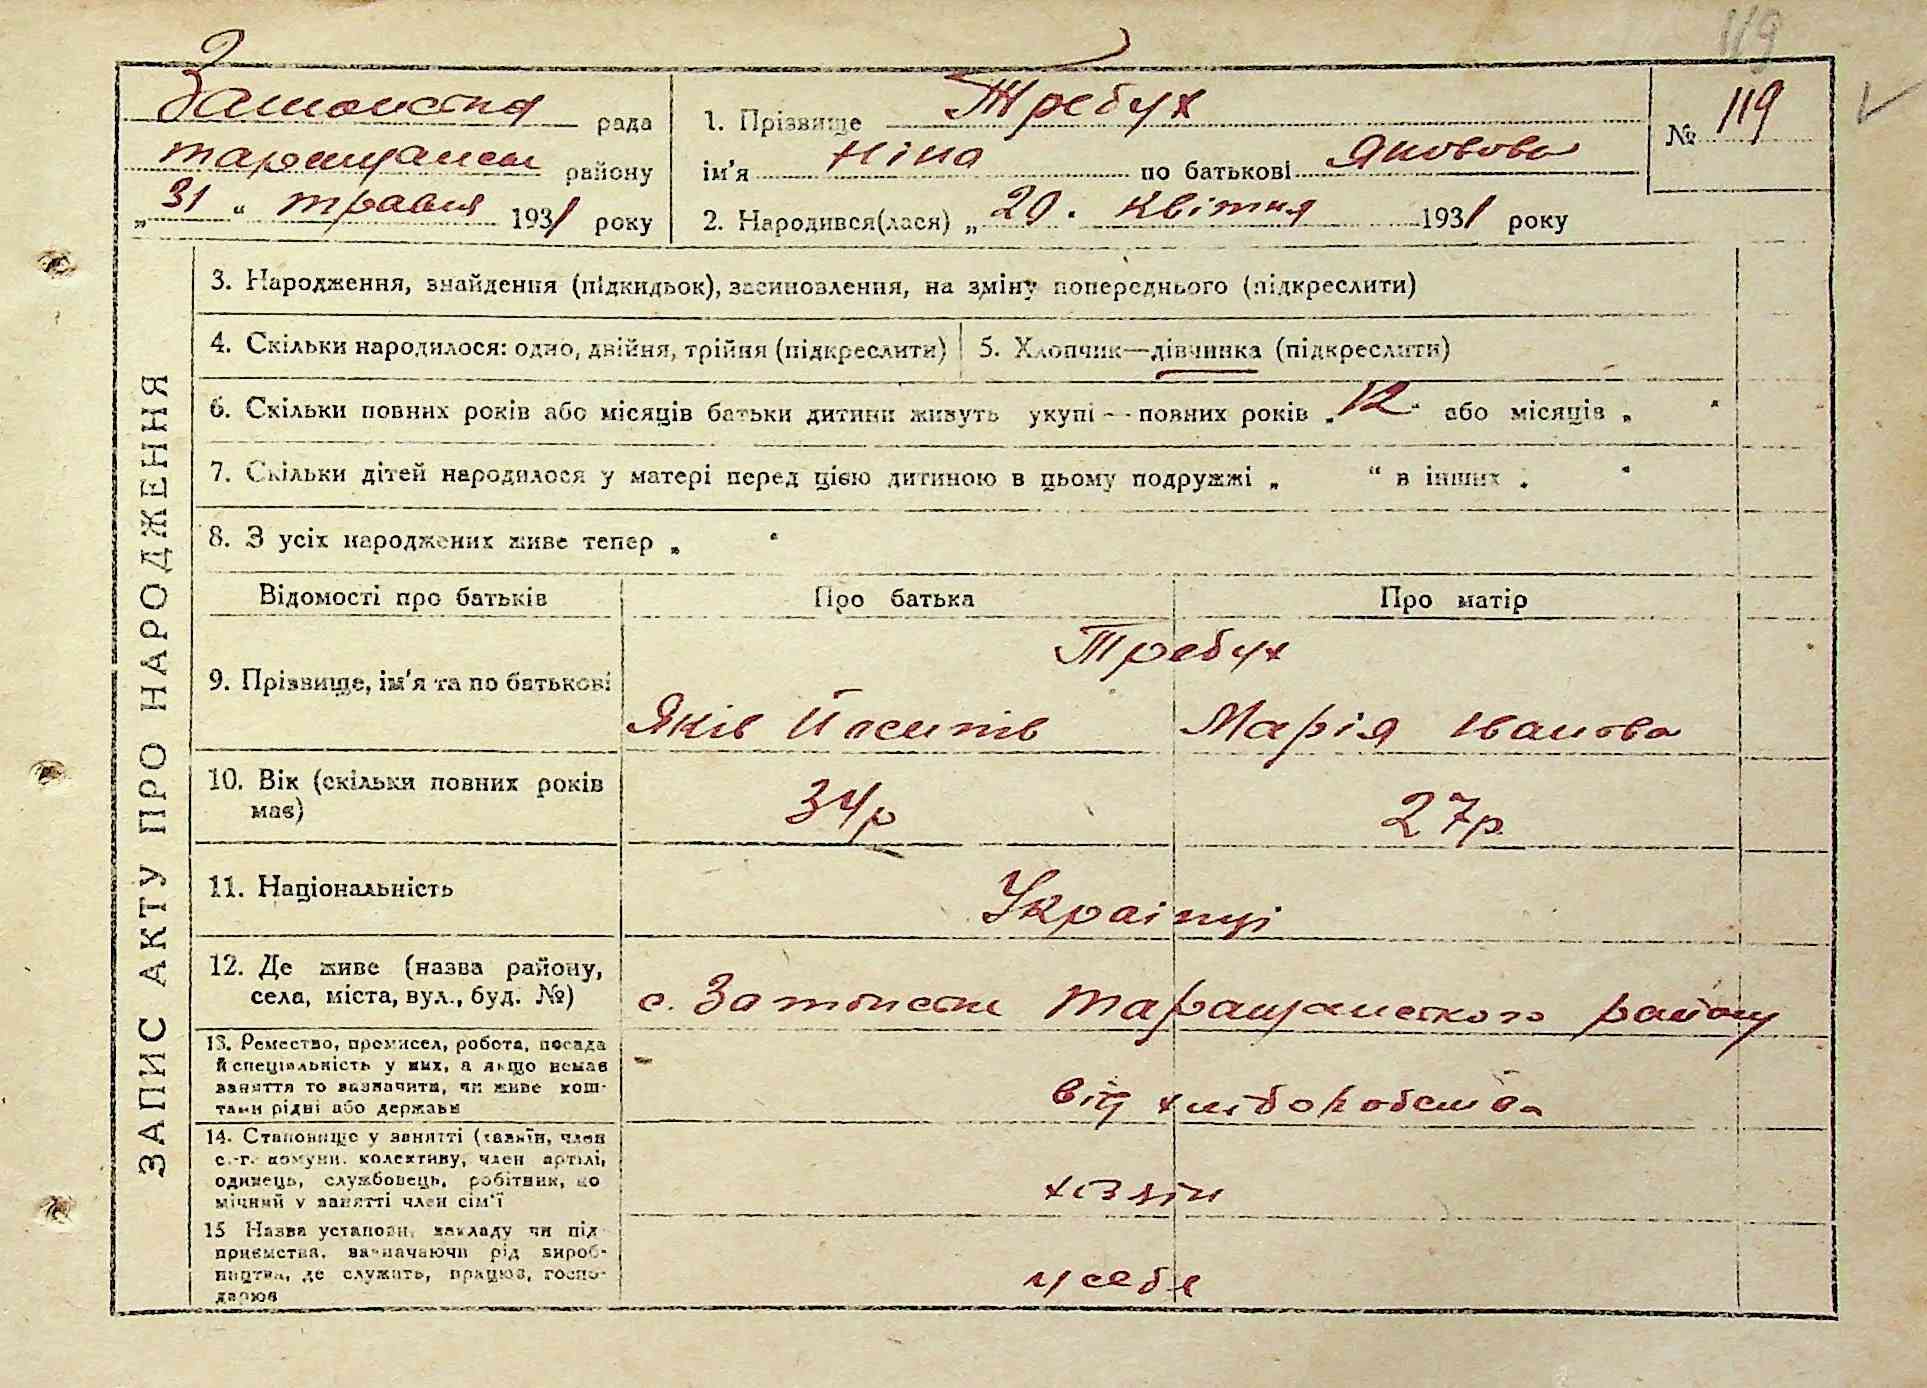 119
рада
Требух
1. Прізвище
№ 119
району
ім'я Ніна по батькові Яковова
„31“ травня 1931 року
2. Народився(лася) „20. квітня 1931 року
ЗАПИС АКТУ ПРО НАРОДЖЕННЯ
3. Народження, знайдення (підкидьок), засиновлення, на зміну попереднього (підкреслити)
4. Скільки народилося: одно, двійня, трійня (підкреслити)
5. Хлопчик—дівчинка (підкреслити)
6. Скільки повних років або місяців батьки дитини живуть укупі — повних років „12“ або місяців „ “
7. Скільки дітей народилося у матері перед цією дитиною в цьому подружжі „ “ в інших „ “
8. З усіх народжених живе тепер „ “
Відомості про батьків
Про батька
Про матір
Требух
9. Прізвище, ім'я та по батькові
Яків Йосипів
Марія Іванова
10. Вік (скільки повних років
має)
34р
27р
11. Національність
Українці
12. Де живе (назва району,
села, міста, вул., буд. №)
с. Таращанського району
13. Ремество, промисел, робота, посада
й спеціяльність у них, а якщо немає
заняття то зазначити, чи живе кош-
тами рідні або держави
від хліборобства
14. Становище у занятті (хазяїн, член
с.-г. комуни, колективу, член артілі,
одинець, службовець, робітник, по
мічний у занятті член сім'ї
хазяїн
15 Назва установи, закладу чи під-
приємства, зазначаючи рід вироб-
ництва, де служить, працює, госпо-
дарює
у себе